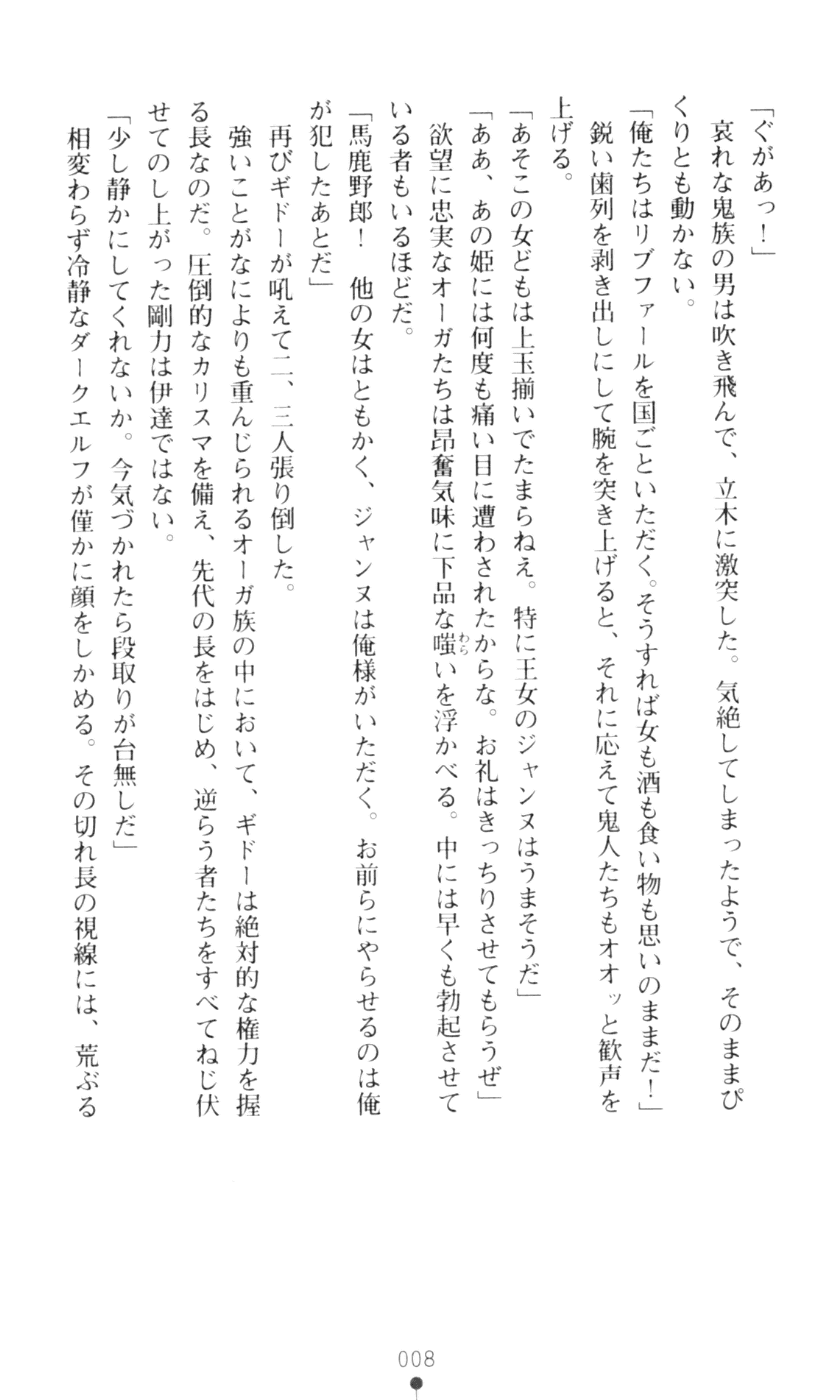 「ぐがあっ！」
　哀れな鬼族の男は吹き飛んで、立木に激突した。気絶してしまったようで、そのままぴ
くりとも動かない。
「俺たちはリブファールを国ごといただく。そうすれば女も酒も食い物も思いのままだ！」
　鋭い歯列を剥き出しにして腕を突き上げると、それに応えて鬼人たちもオオッと歓声を
上げる。
「あそこの女どもは上玉揃いでたまらねえ。特に王女のジャンヌはうまそうだ」
「ああ、あの姫には何度も痛い目に遭わされたからな。お礼はきっちりさせてもらうぜ」
　欲望に忠実なオーガたちは昂奮気味に下品な嗤わらいを浮かべる。中には早くも勃起させて
いる者もいるほどだ。
「馬鹿野郎！　他の女はともかく、ジャンヌは俺様がいただく。お前らにやらせるのは俺
が犯したあとだ」
　再びギドーが吼えて二、三人張り倒した。
　強いことがなによりも重んじられるオーガ族の中において、ギドーは絶対的な権力を握
る長なのだ。圧倒的なカリスマを備え、先代の長をはじめ、逆らう者たちをすべてねじ伏
せてのし上がった剛力は伊達ではない。
「少し静かにしてくれないか。今気づかれたら段取りが台無しだ」
　相変わらず冷静なダークエルフが僅かに顔をしかめる。その切れ長の視線には、荒ぶる
008